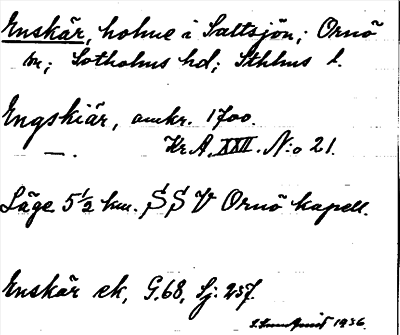 Enskär, holme i Saltsjön; Ornö
sn; Sotholms hd; Sthlms l.
Engskiär, omkr. 1700.
—. Kr. A. XXII. N:o 21.
Läge 5½ km. SSV Ornö kapell.
Enskär ek, G.68, Sj: 257.
1936.